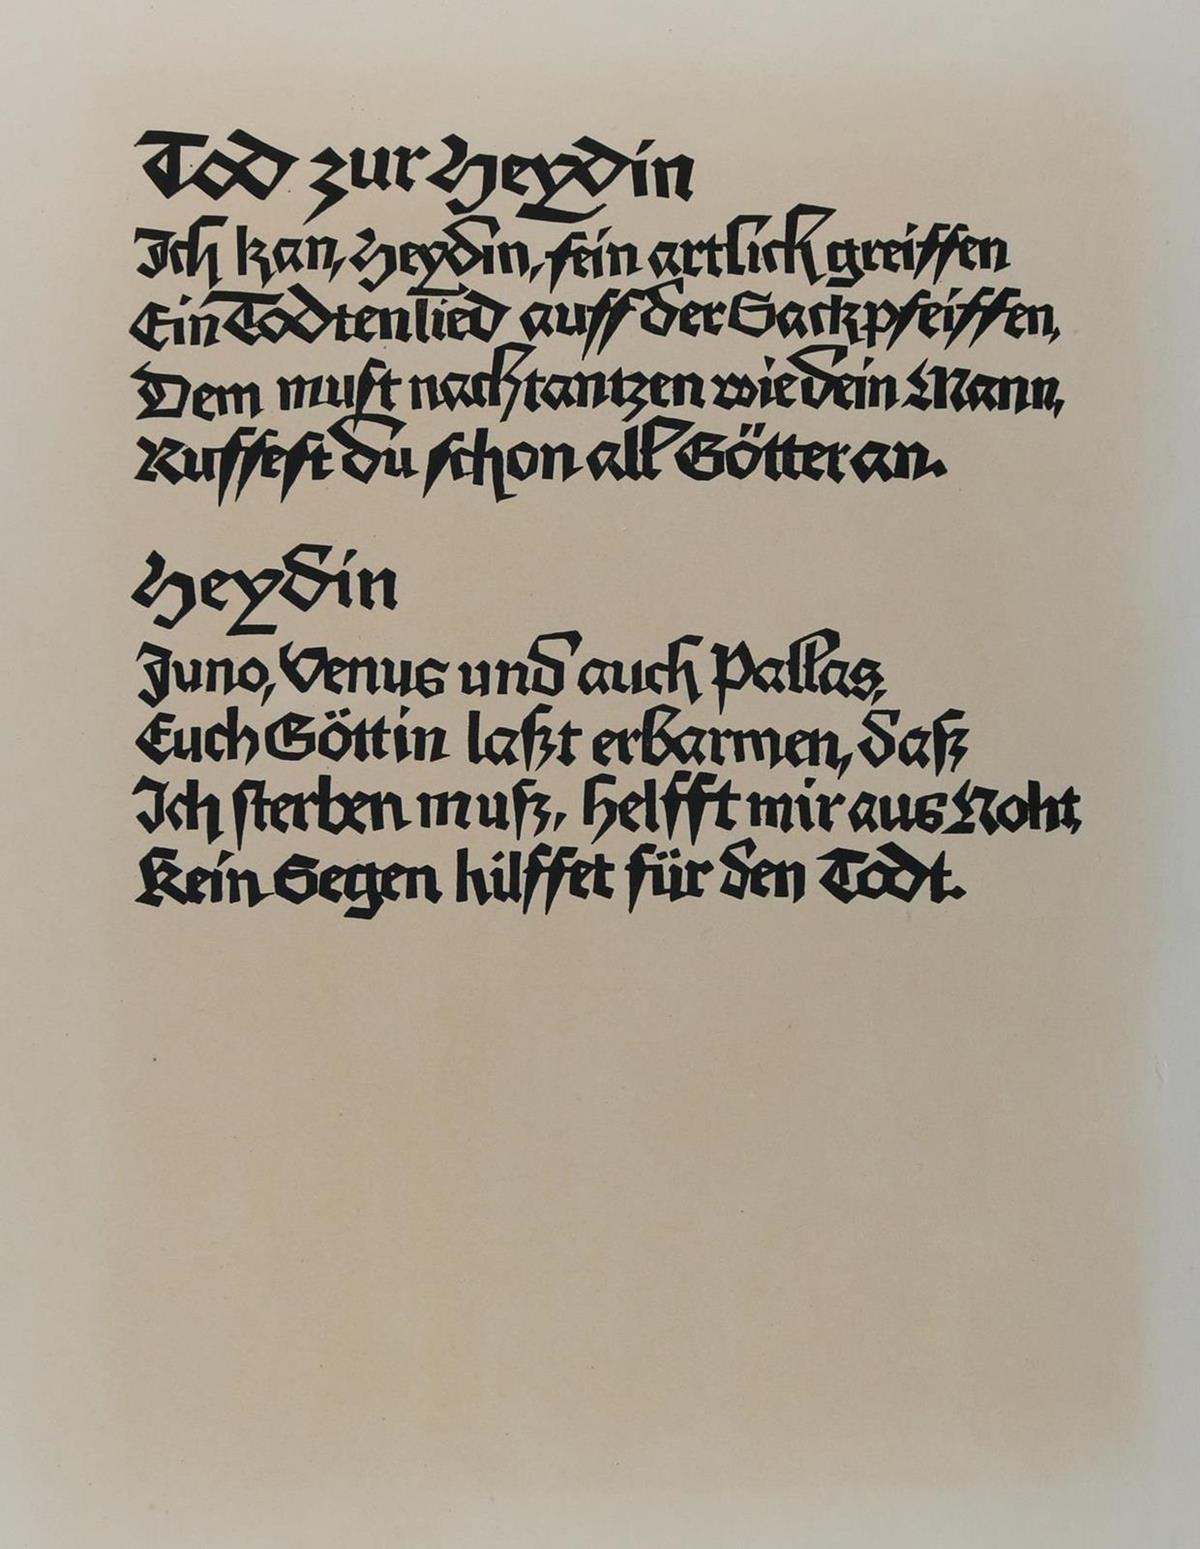 Tod zur Heydin
Ich kan, Heydin, fein artlich greiffen
Ein Todtenlied auff der Sackpfeiffen,
Dem must nachtantzen wie dein Mann,
Ruffest du schon all Götter an.
Heydin
Juno, Venus und auch Pallas,
Euch Göttin laßt erbarmen, daß
Ich sterben muß, helfft mir aus Noht,
Kein Segen hilffet für den Todt.